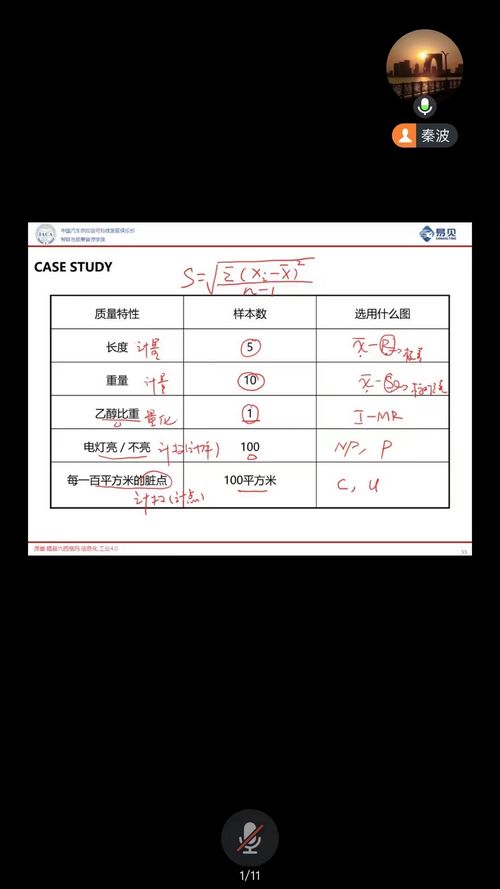 秦波
IACA
中国汽车供应链可持续发展俱乐部
智联与质量管理学院
易贝
CONSULTING
CASE STUDY
S=√(Σ(Xi-X̄)²/n-1)
质量特性 样本数 选用什么图
长度 计量 5 X̄-R→极差
重量 计量 10 X̄-S→
乙醇比重 量化 1 I-MR
电灯亮 / 不亮 计数(计件) 100 NP, P
每一百平方米的脏点 计数(计点) 100平方米 C, U
质量.精益六西格玛.信息化.工业4.0
33
1/11